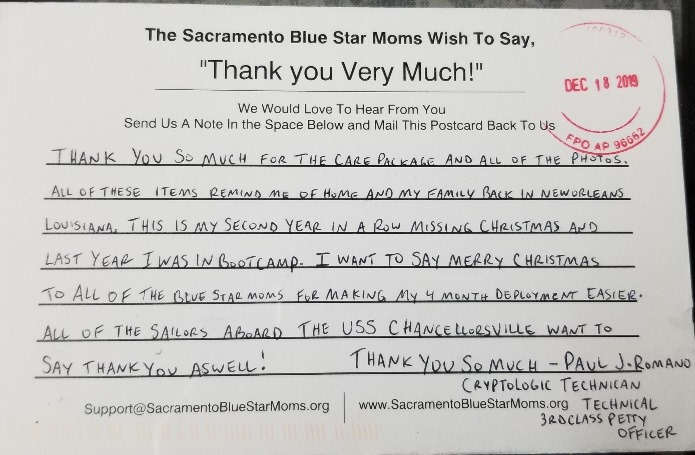 The Sacramento Blue Star Moms Wish To Say,
"Thank you Very Much!"
We Would Love To Hear From You
Send Us A Note In the Space Below and Mail This Postcard Back To Us
DEC 18 2019
FPO AP 96662
THANK YOU SO MUCH FOR THE CARE PACKAGE AND ALL OF THE PHOTOS.
ALL OF THESE ITEMS REMIND ME OF HOME AND MY FAMILY BACK IN NEW ORLEANS
LOUISIANA. THIS IS MY SECOND YEAR IN A ROW MISSING CHRISTMAS AND
LAST YEAR I WAS IN BOOTCAMP. I WANT TO SAY MERRY CHRISTMAS
TO ALL OF THE BLUE STAR MOMS FOR MAKING MY 4 MONTH DEPLOYMENT EASIER.
ALL OF THE SAILORS ABOARD THE USS CHANCELLORSVILLE WANT TO
SAY THANK YOU ASWELL! THANK YOU SO MUCH - PAUL J. ROMANO
CRYPTOLOGIC TECHNICAN
TECHNICAL
3RD CLASS PETTY
OFFICER
Support@SacramentoBlueStarMoms.org www.SacramentoBlueStarMoms.org